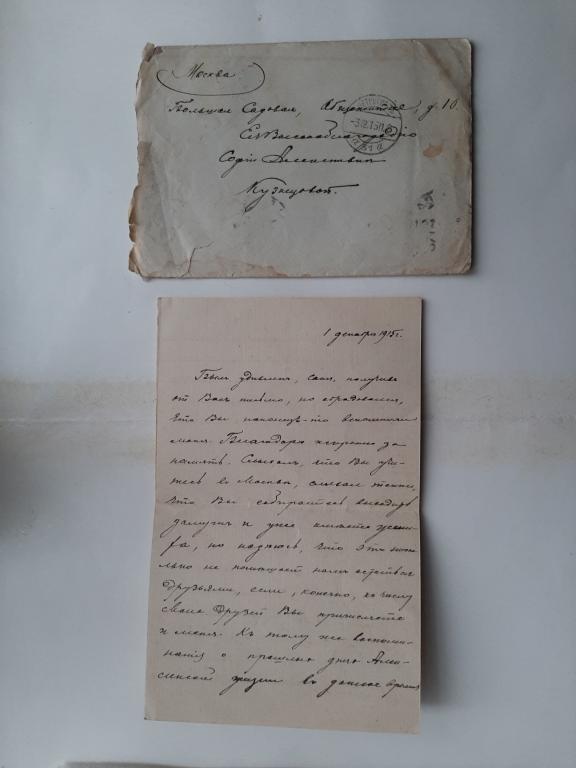 Москва
Большая Садовая, д. 10.
Ея Высокоблагородію
Софіи
Кузнецовой.
1 декабря 1915 г.
Былъ удивленъ, получивъ
отъ Васъ письмо, но обрадовался,
что Вы наконецъ-то вспомнили
меня. Благодарю искренно за
память. Слышалъ, что Вы учи-
тесь въ Москвѣ, слышалъ также,
что Вы собираетесь выходить
замужъ и уже имѣете жени-
ха, но надѣюсь, что это нис-
лько не помѣшаетъ намъ остаться
друзьями, если, конечно, къ числу
своихъ друзей Вы причисляете
и меня. Къ тому же воспоми-
нанія о прошлыхъ дняхъ
жизни въ данное время